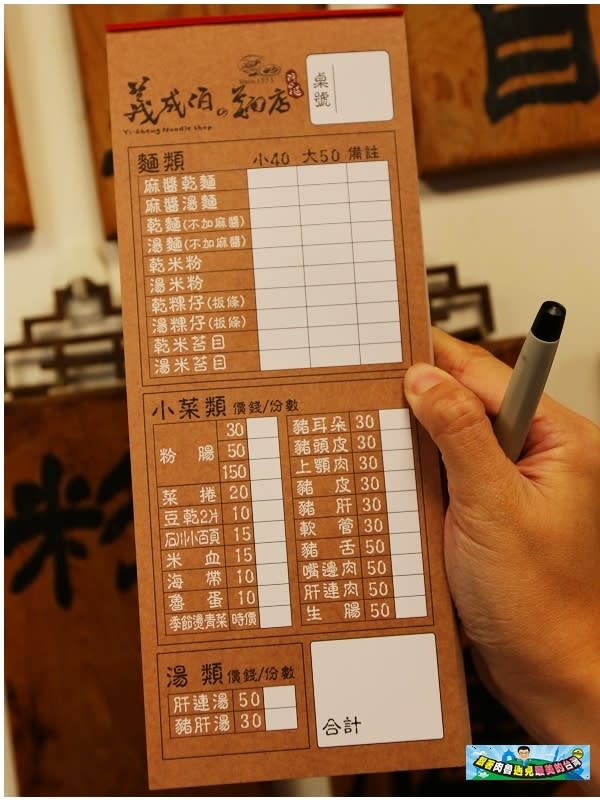 義成伯の麵店
Yi-Cheng Noodle shop
桌號
麵類 小40 大50 備註
麻醬乾麵
麻醬湯麵
乾麵(不加麻醬)
湯麵(不加麻醬)
乾米粉
湯米粉
乾粿仔(板條)
湯粿仔(板條)
乾米苔目
湯米苔目
小菜類 價錢/份數
粉腸 30
50
150
菜捲 20
豆乾2片 10
小百頁 15
米血 15
海帶 10
魯蛋 10
季節燙青菜 時價
豬耳朵 30
豬頭皮 30
上顎肉 30
豬皮 30
豬肝 30
軟管 30
豬舌 50
嘴邊肉 50
肝連肉 50
生腸 50
湯類 價錢/份數
肝連湯 50
豬肝湯 30
合計
跟著肉魯遇見最美的台灣